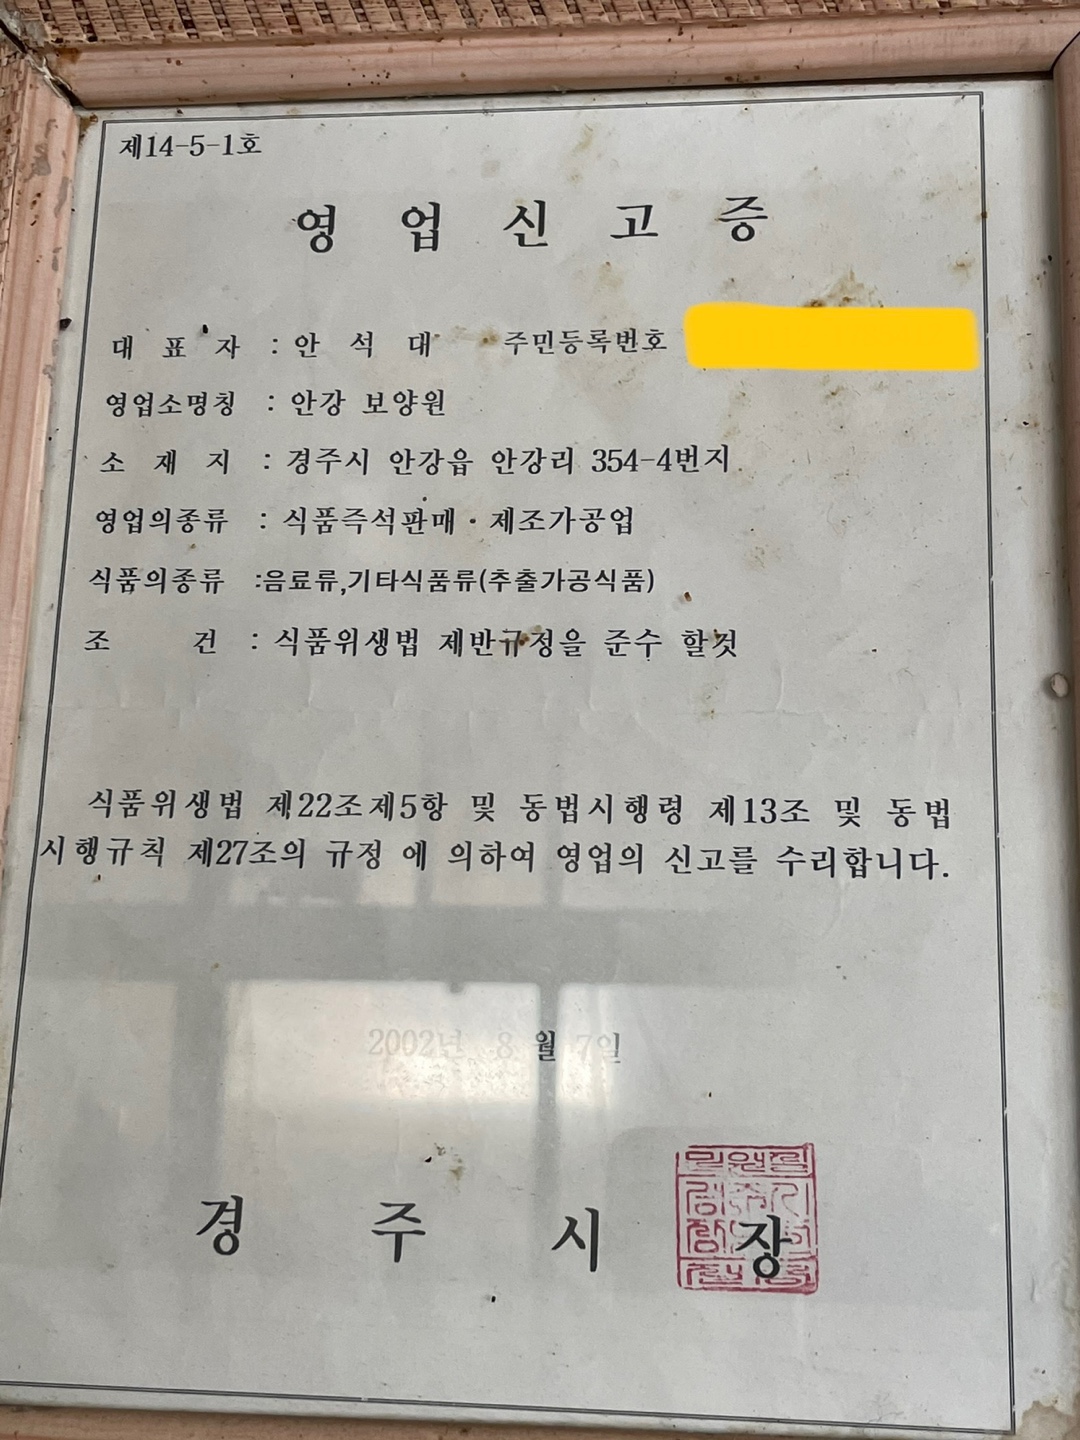 제14-5-1호
영 업 신 고 증
대 표 자 : 안 석 대 주민등록번호
영업소명칭 : 안강 보양원
소 재 지 : 경주시 안강읍 안강리 354-4번지
영업의종류 : 식품즉석판매·제조가공업
식품의종류 :음료류,기타식품류(추출가공식품)
조 건 : 식품위생법 제반규정을 준수 할것
식품위생법 제22조제5항 및 동법시행령 제13조 및 동법
시행규칙 제27조의 규정 에 의하여 영업의 신고를 수리합니다.
2002년 8월 7일
경 주 시 장